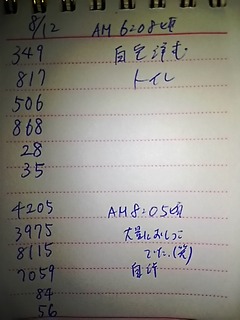 8/12 AM 6:08頃
349 自宅注む
817 トイレ
506
868
28
35
4205 AM 8:05頃
3975 大量におしっこ
8115 でた(笑)
7059 自
84
56